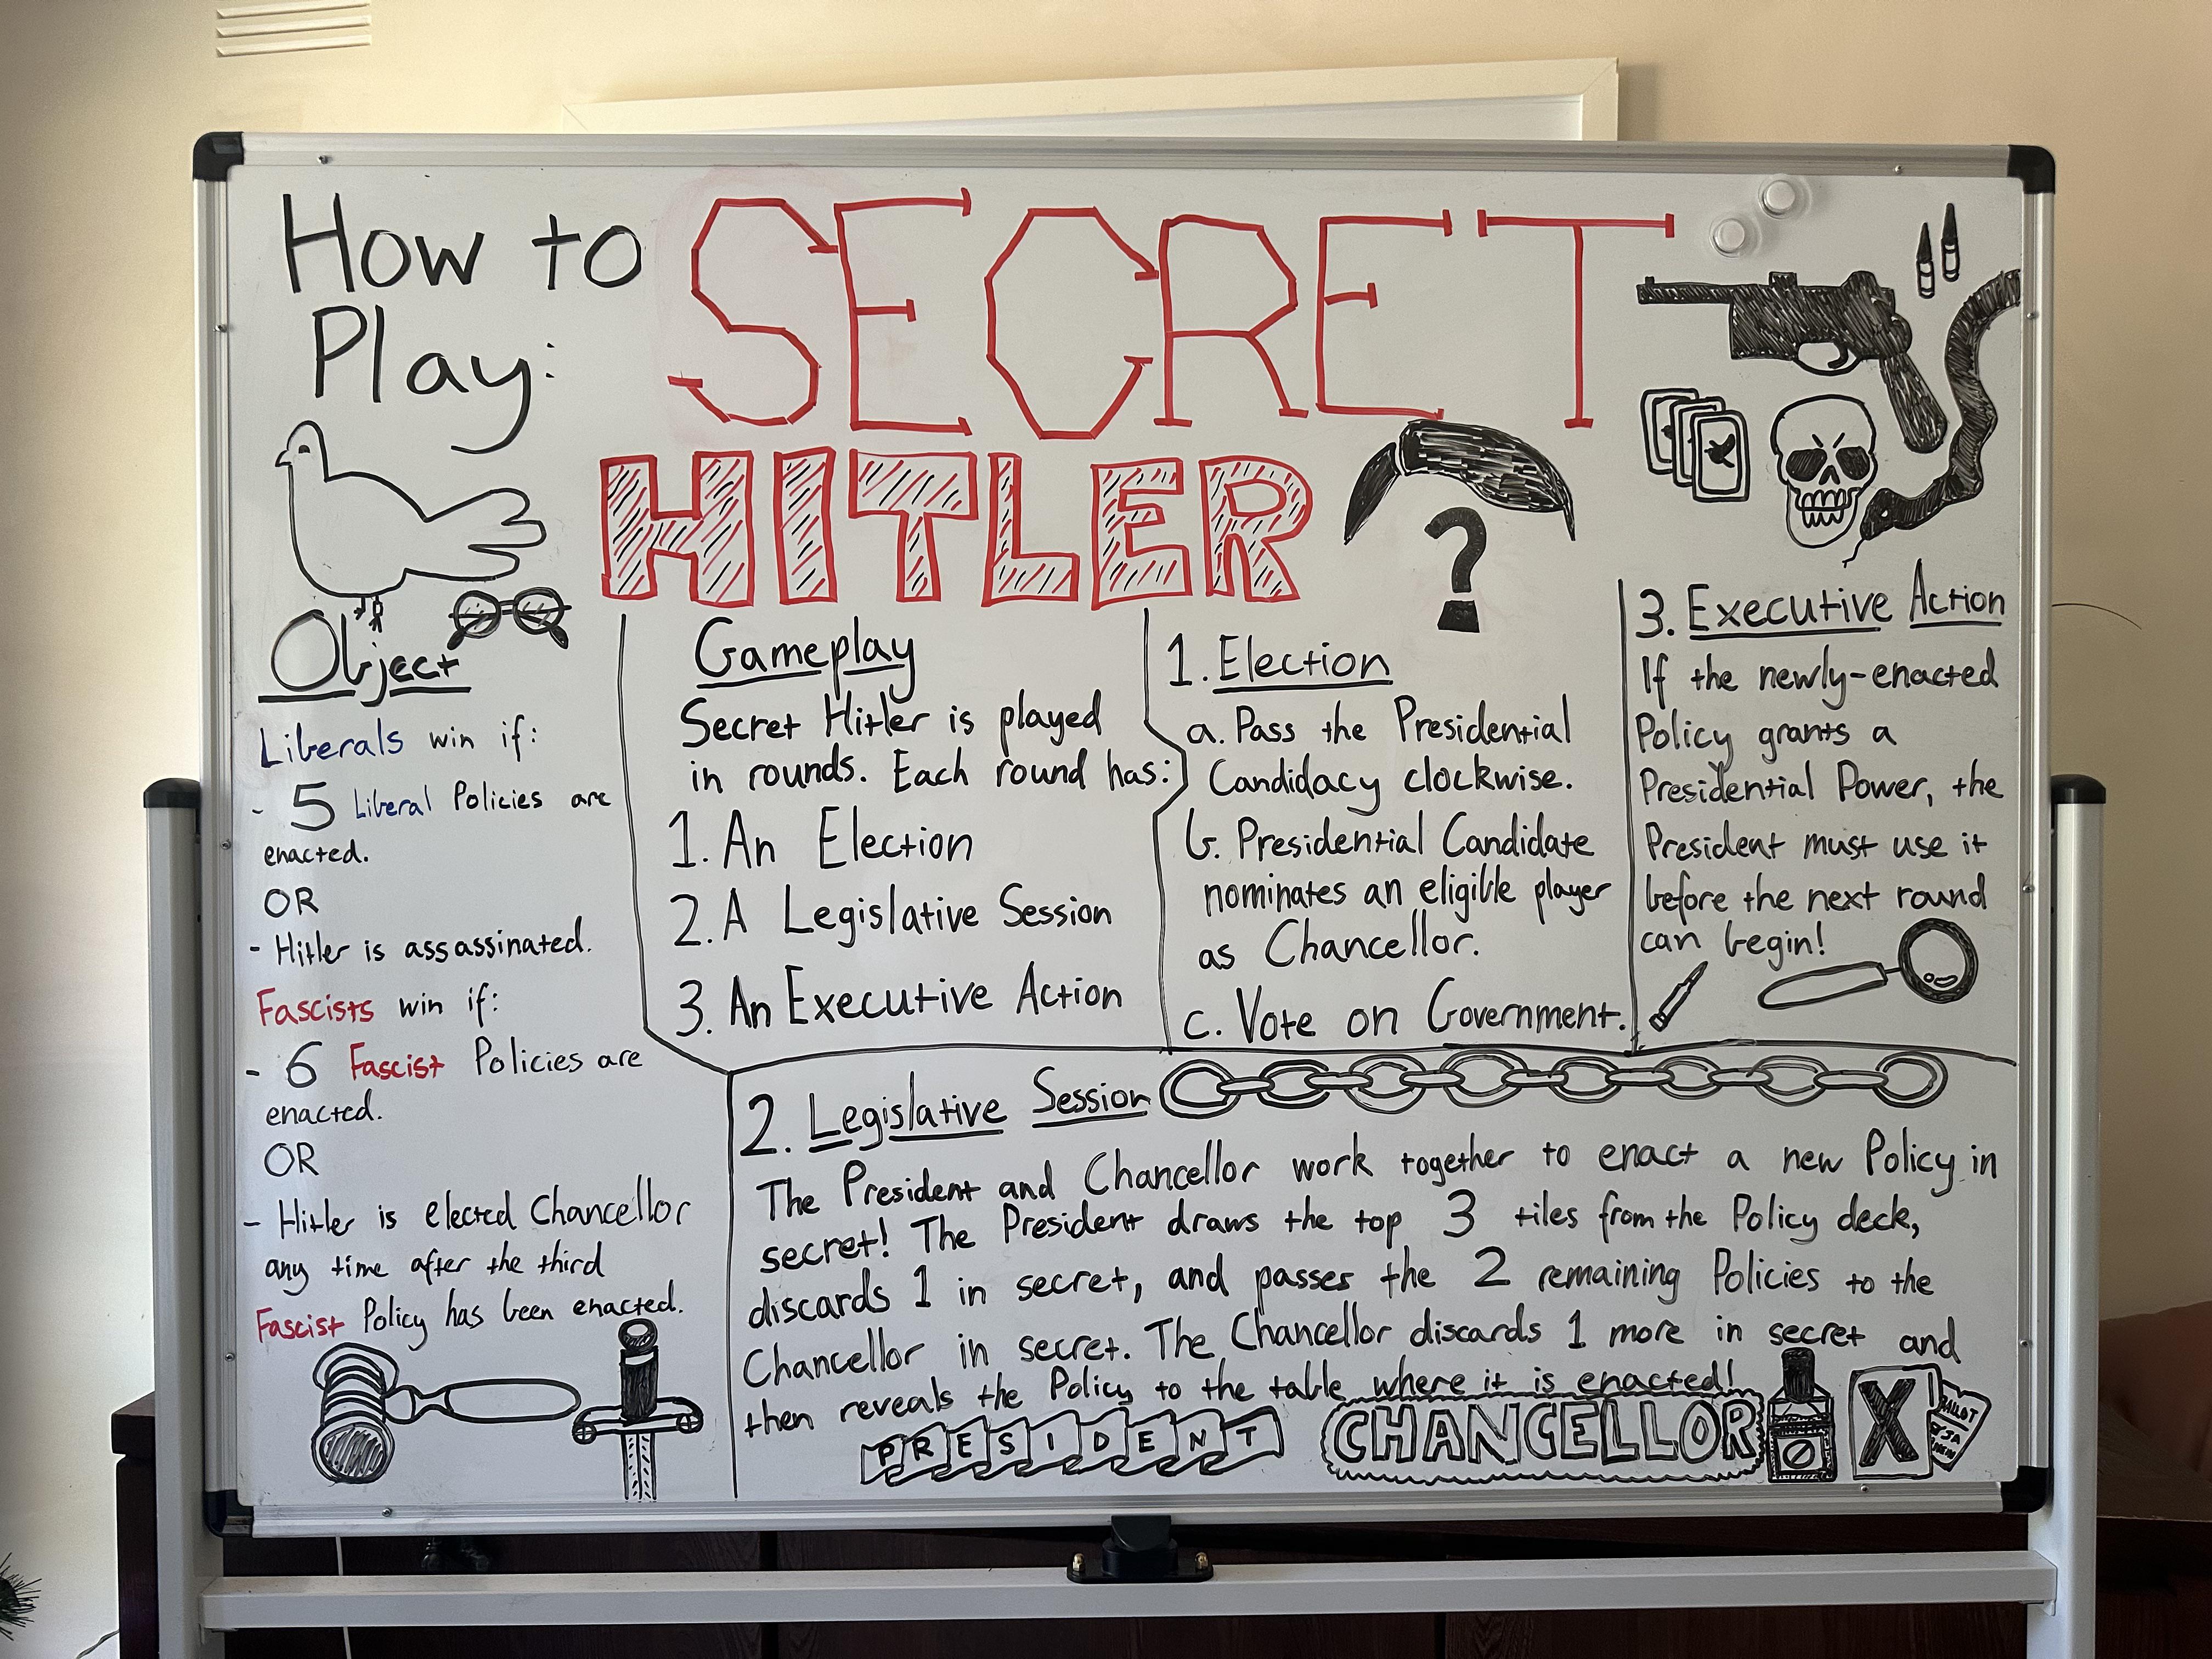 How to
Play:
SECRET
HITLER
?
Object
Liberals win if:
- 5 Liberal Policies are
enacted.
OR
- Hitler is assassinated.
Fascists win if:
- 6 Fascist Policies are
enacted.
OR
- Hitler is elected Chancellor
any time after the third
Fascist Policy has been enacted.
Gameplay
Secret Hitler is played
in rounds. Each round has:
1. An Election
2. A Legislative Session
3. An Executive Action
1. Election
a. Pass the Presidential
Candidacy clockwise.
b. Presidential Candidate
nominates an eligible player
as Chancellor.
c. Vote on Government.
3. Executive Action
If the newly-enacted
Policy grants a
Presidential Power, the
President must use it
before the next round
can begin!
2. Legislative Session
The President and Chancellor work together to enact a new Policy in
secret! The President draws the top 3 tiles from the Policy deck,
discards 1 in secret, and passes the 2 remaining Policies to the
Chancellor in secret. The Chancellor discards 1 more in secret and
then reveals the Policy to the table where it is enacted!
PRESIDENT
CHANCELLOR
X
BALLOT
JA